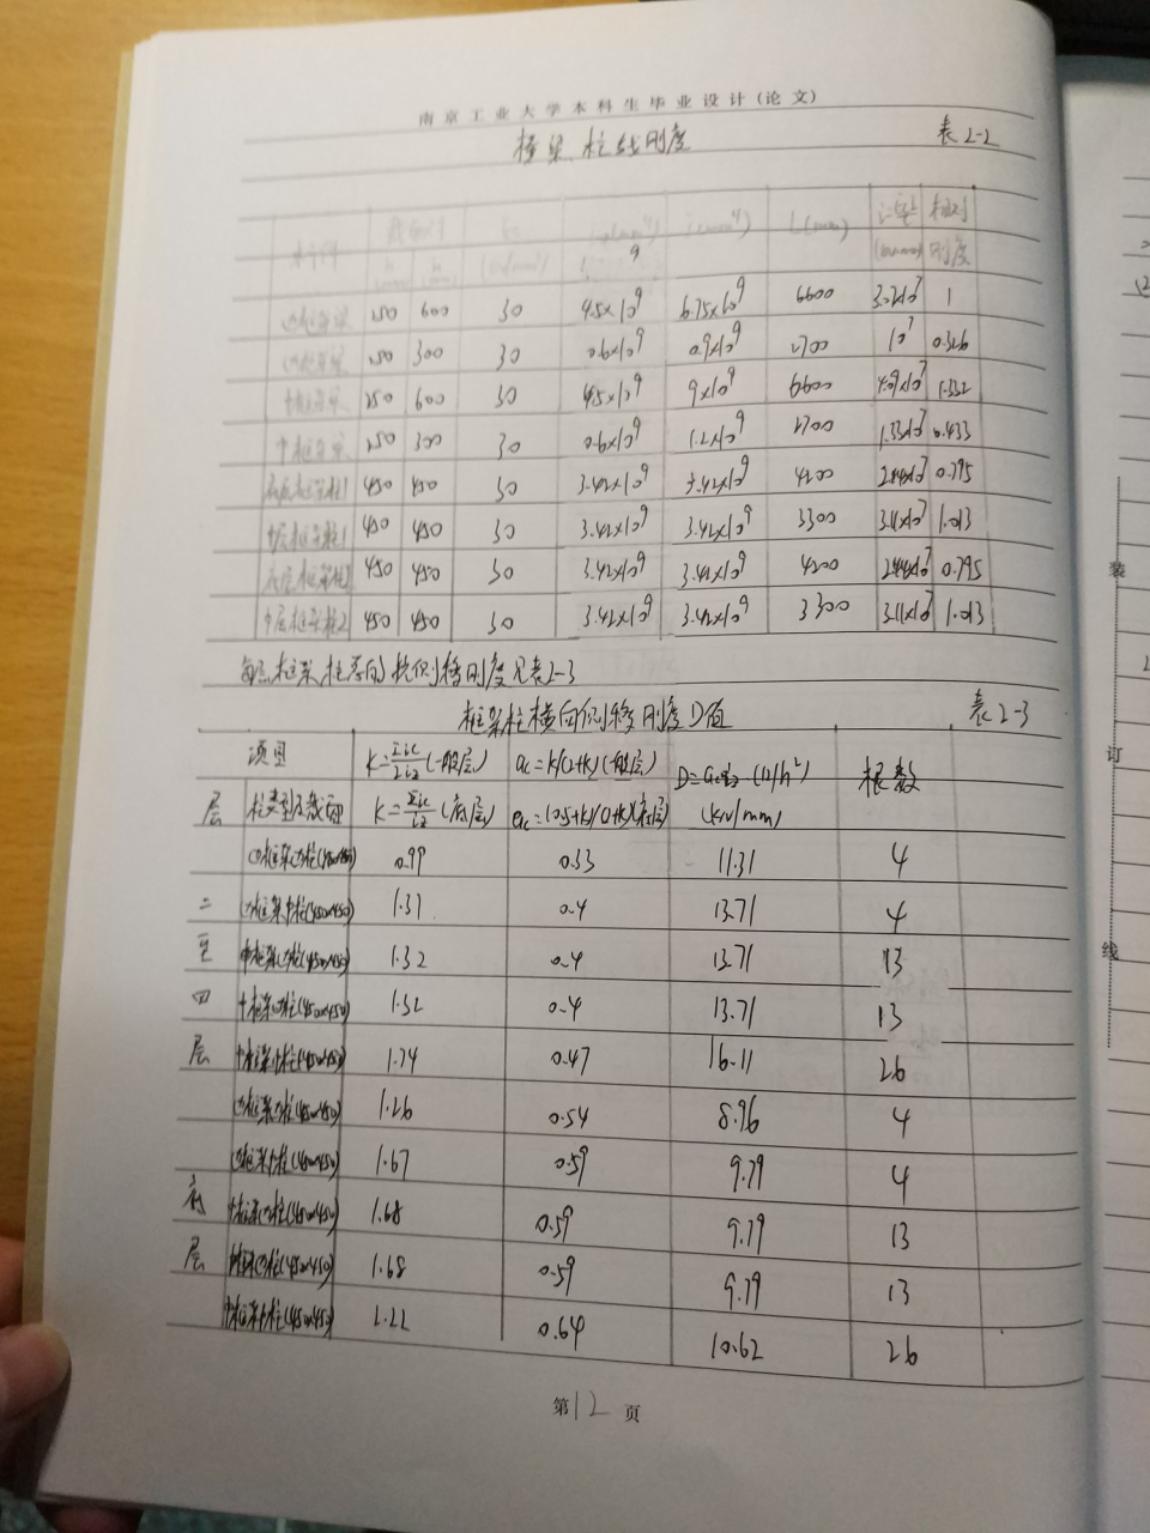 南京工业大学本科生毕业设计(论文)
横梁、柱线刚度 表2-2
截面尺寸 L(mm) 相对
刚度
250 600 30 4.5×10⁹ 6.75×10⁹ 6600 1
250 300 30 0.6×10⁹ 0.9×10⁹ 2700 10⁷ 0.326
250 600 30 4.5×10⁹ 9×10⁹ 6600 4.09×10⁷ 1.332
中框架梁 250 300 30 0.6×10⁹ 1.2×10⁹ 2700 1.33×10⁷ 0.433
底层框架柱1 450 450 30 3.42×10⁹ 3.42×10⁹ 4200 2.44×10⁷ 0.795
中层框架柱1 450 450 30 3.42×10⁹ 3.42×10⁹ 3300 3.11×10⁷ 1.013
底层框架柱2 450 450 30 3.42×10⁹ 3.42×10⁹ 4200 2.44×10⁷ 0.795
中层框架柱2 450 450 30 3.42×10⁹ 3.42×10⁹ 3300 3.11×10⁷ 1.013
每层框架柱总的抗侧移刚度见表2-3
框架柱横向侧移刚度D值 表2-3
项目 K=Σic/2iz(一般层) ac=K/(2+K)(一般层) D=aciz(12/h²) 根数
层 柱类型及截面 K=Σic/iz(底层) ac=(0.5+K)/(2+K)(底层) (kN/mm)
边框架边柱(450×450) 0.99 0.33 11.31 4
二 边框架中柱(450×450) 1.31 0.4 13.71 4
至 中框架边柱(450×450) 1.32 0.4 13.71 13
四 中框架边柱(450×450) 1.32 0.4 13.71 13
层 中框架中柱(450×450) 1.74 0.47 16.11 26
边框架边柱(450×450) 1.26 0.54 8.96 4
边框架中柱(450×450) 1.67 0.59 9.79 4
底 中框架边柱(450×450) 1.68 0.59 9.79 13
层 中框架边柱(450×450) 1.68 0.59 9.79 13
中框架中柱(450×450) 2.22 0.64 10.62 26
第12页
装
订
线